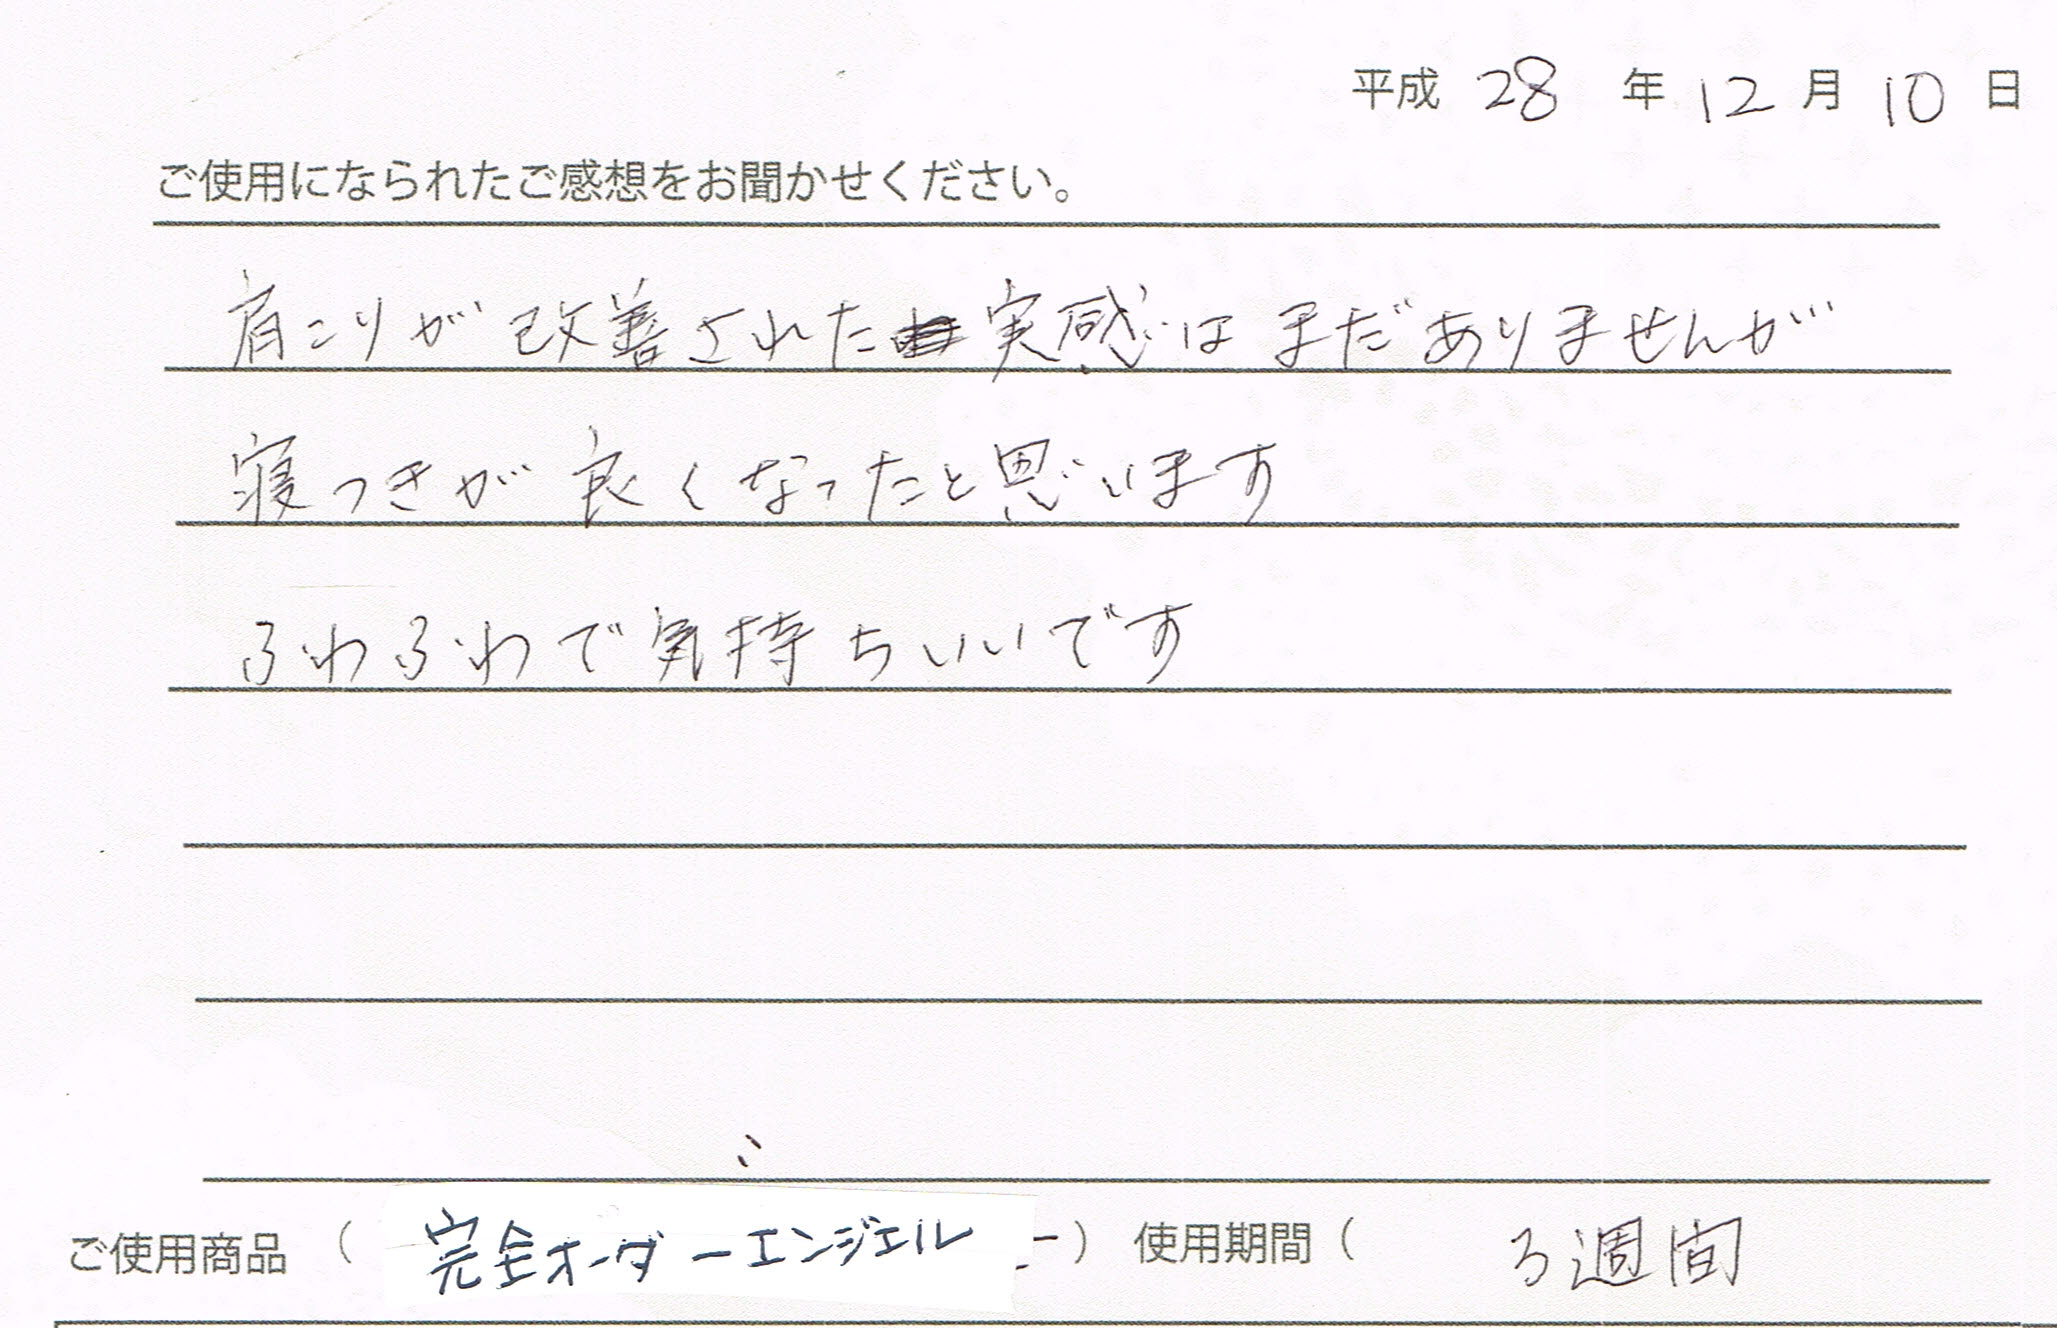 平成 28 年 12 月 10 日
ご使用になられたご感想をお聞かせください。
肩こりが改善された実感はまだありませんが
寝つきが良くなったと思います
ふわふわで気持ちいいです
ご使用商品 （ 完全オーダーエンジェル ） 使用期間（ 3週間